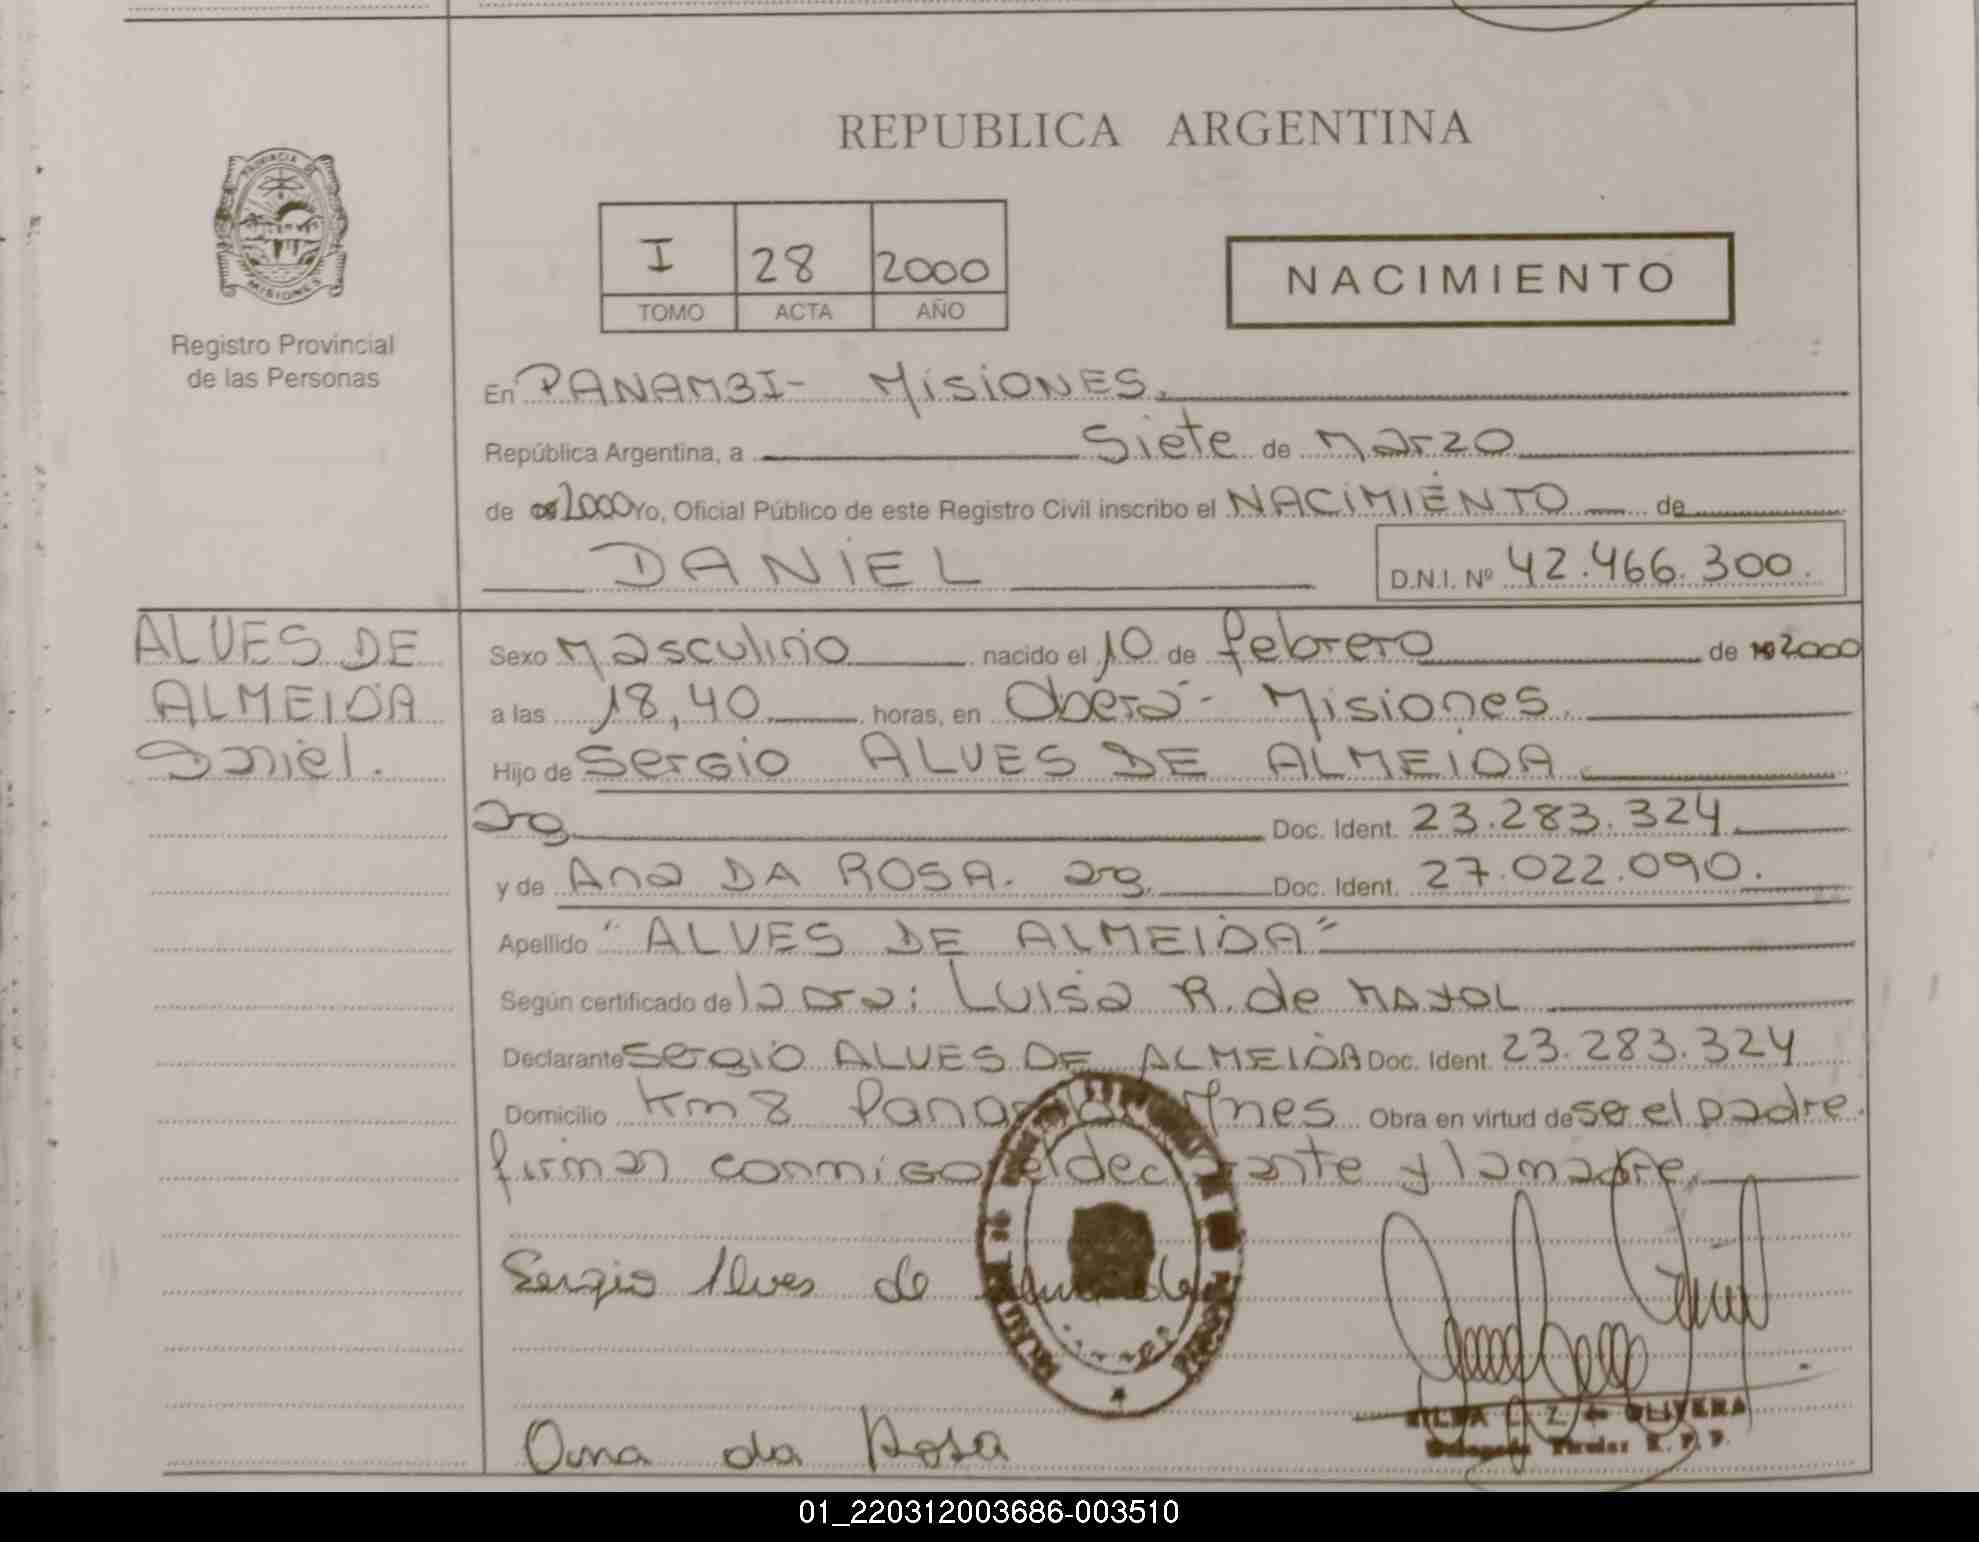 REPUBLICA ARGENTINA
PROVINCIA DE
MISIONES
Registro Provincial
de las Personas
I 28 2000
TOMO ACTA AÑO
NACIMIENTO
En PANAMBI- MISIONES.
República Argentina, a Siete de Marzo
de 2000 Yo, Oficial Público de este Registro Civil inscribo el NACIMIENTO de
DANIEL D.N.I. Nº 42.466.300.
ALVES DE
ALMEIDA
Daniel.
Sexo Masculino nacido el 10 de febrero de 2000
a las 18,40 horas, en Oberá- Misiones.
Hijo de Sergio ALVES DE ALMEIDA
arg Doc. Ident. 23.283.324
y de Ana DA ROSA. arg. Doc. Ident. 27.022.090.
Apellido "ALVES DE ALMEIDA"
Según certificado de la Dra: Luisa R. de MAYOL
Declarante Sergio ALVES DE ALMEIDA Doc. Ident. 23.283.324
Domicilio Km 8 Panambi Mnes Obra en virtud de ser el padre.
firman conmigo el declarante y la madre.
Sergio Alves de Almeida
Z. de OLIVERA
Delegada Titular R. P. P.
Ana da Rosa
01_220312003686-003510